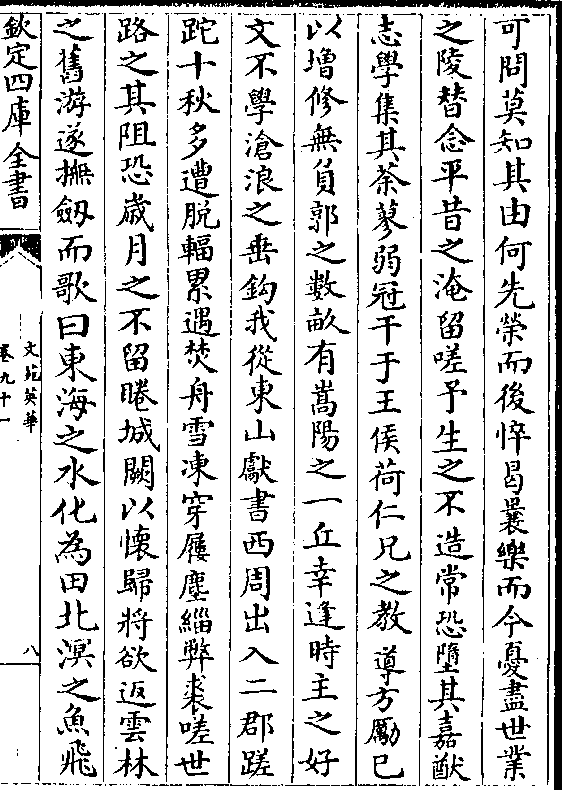 可問莫知其由何先榮而後悴曷曩樂而今憂盡世業
之陵替念平昔之淹留嗟予生之不造常恐墮其嘉猷
志學集其荼蓼弱冠干于王侯荷仁兄之教導方勵已
以增修無負郭之數畝有嵩陽之一丘幸逢時主之好
文不學滄浪之垂鈎我從東山獻書西周出入二郡蹉
跎十秋多遭脫輻累遇焚舟雪凍穿屨塵緇弊裘嗟世
路之其阻恐歲月之不留睠城闕以懷歸將欲返雲林
之舊游遂撫劔而歌曰東海之水化為田北溟之魚飛
欽定四庫全書
文苑英華
卷九十一
八